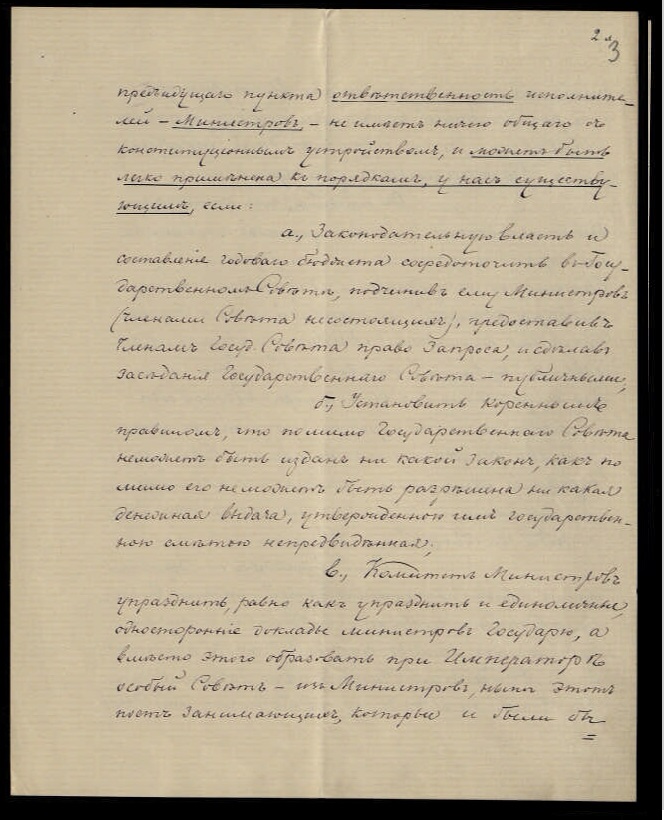 2 л
3
предъидущаго пункта отвѣтственность исполните-
лей – Министровъ, – не имѣетъ ничего общаго съ
конституціоннымъ устройствомъ, и можетъ быть
легко примѣнена къ порядкамъ, у насъ существу-
ющимъ, если:
а., Законодательную власть и
составленіе годоваго бюджета сосредоточить въ Госу-
дарственномъ Совѣтѣ, подчинивъ ему Министровъ
(членами Совѣта несостоящихъ), предоставивъ
членамъ Госуд. Совѣта право Запроса, и сдѣлавъ
засѣданія Государственнаго Совѣта – публичными,
б., Установить кореннымъ
правиломъ, что помимо Государственнаго Совѣта
неможетъ быть изданъ ни какой Законъ, какъ по
мимо его неможетъ быть разрѣшена ни какая
денежная выдача, утвержденною имъ государствен-
ною смѣтою непредвидѣнная,
в., Комитетъ Министровъ
упразднить, равно какъ упразднить и единоличные,
односторонніе доклады министровъ Государю, а
вмѣсто этого образовать при Императорѣ
особый Совѣтъ – изъ Министровъ, нынѣ этотъ
постъ занимающихъ, которые и были бы